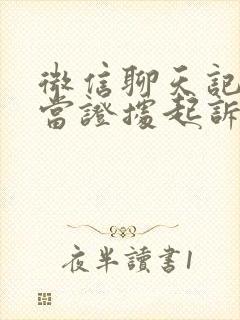 微信聊天記
當證據起訴
夜半讀書1